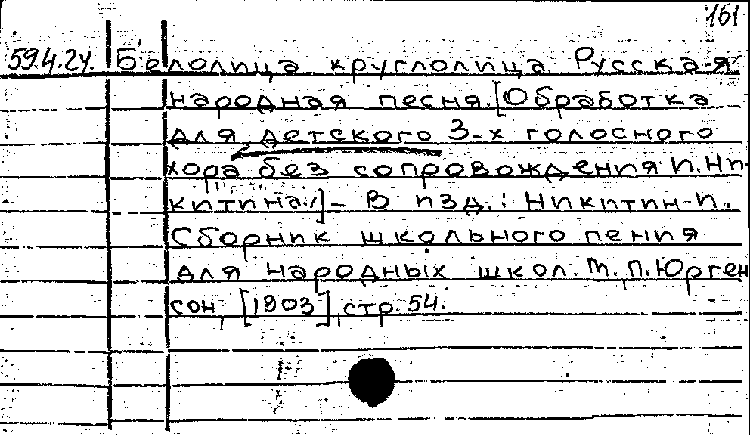 161
59.4.24. Белолица круглолица. Русская
народная песня. [Обработка
для детского 3-х голосного
хора без сопровождения П. Ни-
китина.] - В изд.: Никитин П.
Сборник школьного пения
для народных школ. М., П. Юрген
сон, [1903], стр. 54.